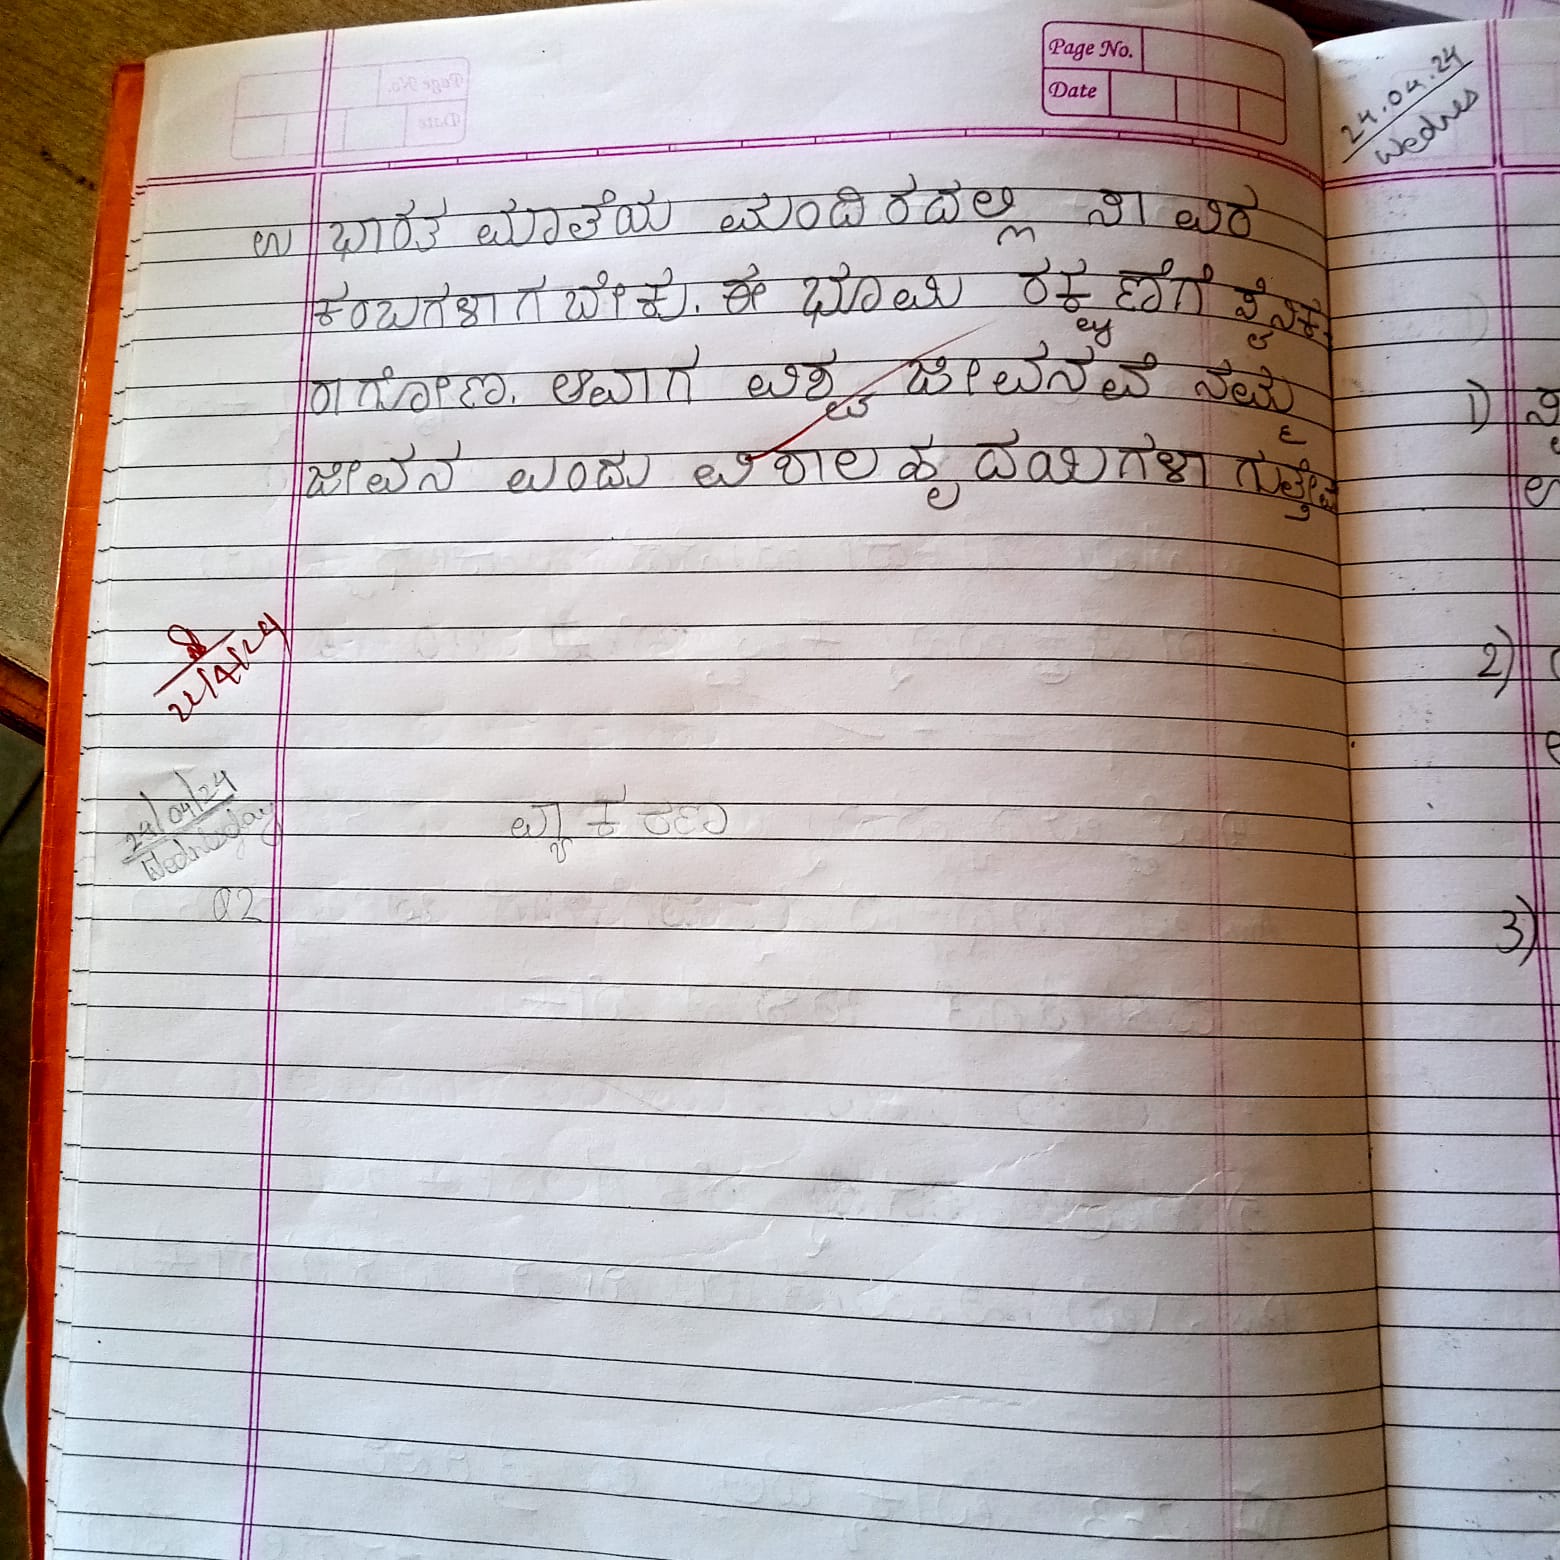 Page No.
Date
24.04.24
Wednes
ಉ ಭಾರತ ಮಾತೆಯ ಮಂದಿರದಲ್ಲಿ ನಾವಿರ
ಕಂಬಗಳಾಗ ಬೇಕು. ಈ ಭೂಮಿ ರಕ್ಷಣೆಗೆ ಸೈನಿಕ
ರಾಗೋಣ. ಆವಾಗ ವಿಶ್ವ ಜೀವನವೆ ನಮ್ಮ
ಜೀವನ ಎಂದು ವಿಶಾಲ ಹೃದಯಿಗಳಾ ಗುತ್ತೇವೆ
24/04/24
Wednesday
ವ್ಯಾಕರಣ
02
1)
2)
3)